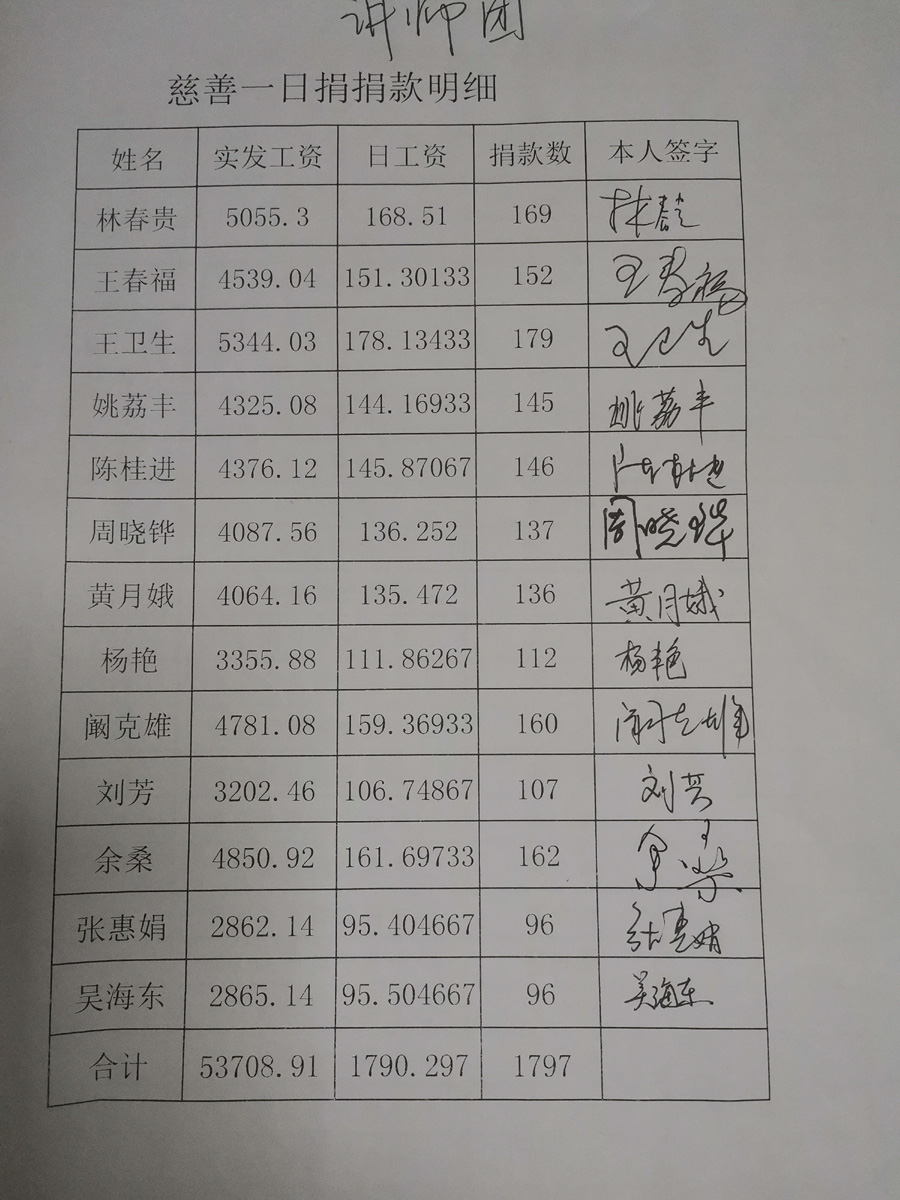 讲师团
慈善一日捐捐款明细
姓名 实发工资 日工资 捐款数 本人签字
林春贵 5055.3 168.51 169
王春福 4539.04 151.30133 152 王春福
王卫生 5344.03 178.13433 179 王卫生
姚荔丰 4325.08 144.16933 145 姚荔丰
陈桂进 4376.12 145.87067 146
周晓铧 4087.56 136.252 137 周晓铧
黄月娥 4064.16 135.472 136 黄月娥
杨艳 3355.88 111.86267 112 杨艳
阚克雄 4781.08 159.36933 160
刘芳 3202.46 106.74867 107 刘芳
余桑 4850.92 161.69733 162 余桑
张惠娟 2862.14 95.404667 96 张惠娟
吴海东 2865.14 95.504667 96 吴海东
合计 53708.91 1790.297 1797